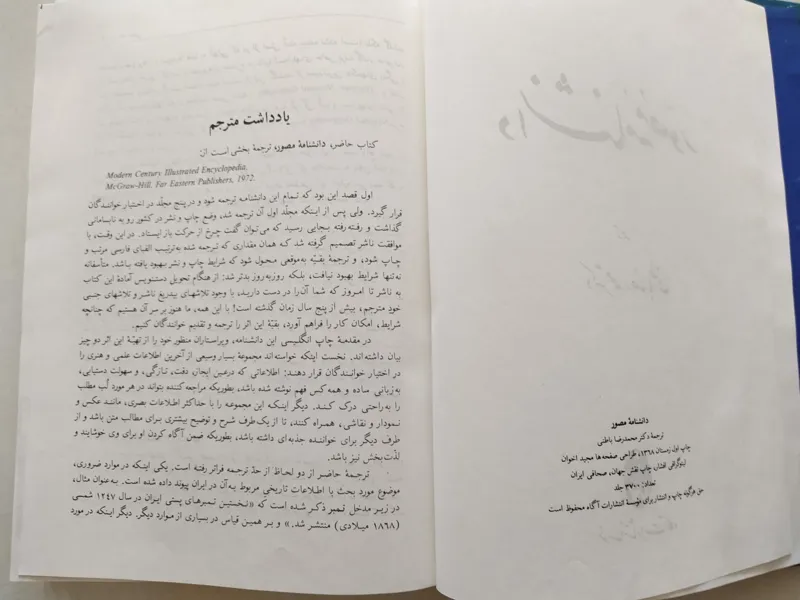 دانشنامهٔ مصور
ترجمهٔ دکتر محمدرضا باطنی
چاپ اول زمستان ۱۳۶۸، طراحی صفحه‌ها مجید اخوان
لیتوگرافی افشار، چاپ نقش جهان، صحافی ایران
تعداد: ۳۷۰۰ جلد
حق هرگونه چاپ و انتشار برای مؤسسهٔ انتشارات آگاه محفوظ است
یادداشت مترجم
کتاب حاضر، دانشنامهٔ مصور، ترجمهٔ بخشی است از:
Modern Century Illustrated Encyclopedia.
McGraw-Hill, Far Eastern Publishers, 1972.
اول قصد این بود که تمام این دانشنامه ترجمه شود و در پنج مجلّد در اختیار خوانندگان
قرار گیرد. ولی پس از اینکه مجلّد اول آن ترجمه شد، وضع چاپ و نشر در کشور رو به نابسامانی
گذاشت و رفته‌رفته بجایی رسید که می‌توان گفت چرخ از حرکت باز ایستاد. در این وقت، با
موافقت ناشر تصمیم گرفته شد که همان مقداری که ترجمه شده به‌ترتیب الفبای فارسی مرتب و
چاپ شود، و ترجمهٔ بقیّه به‌موقعی محول شود که شرایط چاپ و نشر بهبود یافته باشد. متأسفانه
نه‌تنها شرایط بهبود نیافت، بلکه روزبه‌روز بدتر شد: از هنگام تحویل دستنویس آمادهٔ این کتاب
به ناشر تا امروز که شما آن‌را در دست دارید، با وجود تلاشهای بیدریغ ناشر و تلاشهای جنبی
خود مترجم، بیش از پنج سال زمان گذشته است! با این همه، ما هنوز بر سر آن هستیم که چنانچه
شرایط، امکان کار را فراهم آورد، بقیّهٔ این اثر را ترجمه و تقدیم خوانندگان کنیم.
در مقدمهٔ چاپ انگلیسی این دانشنامه، ویراستاران منظور خود را از تهیّهٔ این اثر دو چیز
بیان داشته‌اند. نخست اینکه خواسته‌اند مجموعهٔ بسیار وسیعی از آخرین اطلاعات علمی و هنری را
در اختیار خوانندگان قرار دهند: اطلاعاتی که درعین ایجاز، دقت، تازگی، و سهولت دستیابی،
به‌زبانی ساده و همه‌کس فهم نوشته شده باشد، بطوریکه مراجعه‌کننده بتواند در هر مورد لُب مطلب
را به‌راحتی درک کند. دیگر اینکه این مجموعه را با حداکثر اطلاعات بصری، مانند عکس و
نمودار و نقاشی، همراه کنند، تا از یک‌طرف شرح و توضیح بیشتری برای مطالب متن باشد و از
طرف دیگر برای خواننده جذبه‌ای داشته باشد، بطوریکه ضمن آگاه کردن او برای وی خوشایند و
لذّت‌بخش نیز باشد.
ترجمهٔ حاضر از دو لحاظ از حدّ ترجمه فراتر رفته است. یکی اینکه در موارد ضروری،
موضوع مورد بحث با اطلاعات تاریخی مربوط به‌آن در ایران پیوند داده شده است. به‌عنوان مثال،
در زیر مدخل تمبر ذکر شده است که «نخستین تمبرهای پستی ایران در سال ۱۲۴۷ شمسی
(۱۸۶۸ میلادی) منتشر شد.» و بر همین قیاس در بسیاری از موارد دیگر. دیگر اینکه در مورد